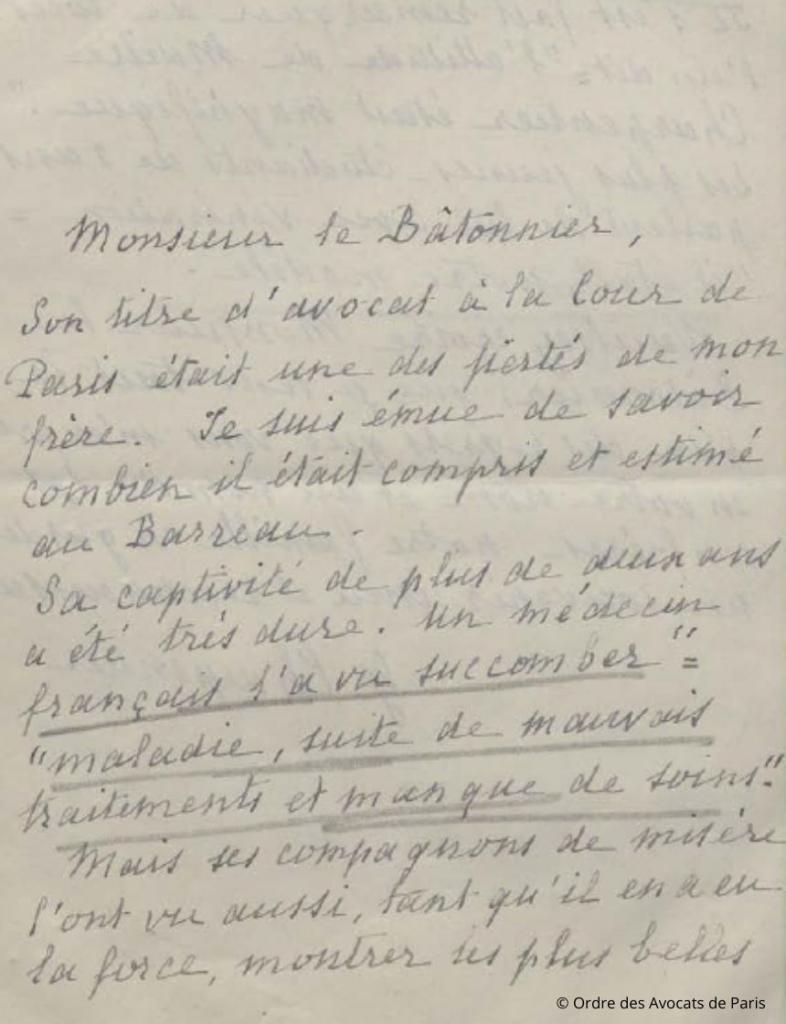 Monsieur le Bâtonnier,
Son titre d'avocat à la Cour de
Paris était une des fiertés de mon
frère. Je suis émue de savoir
combien il était compris et estimé
au Barreau.
Sa captivité de plus de deux ans
a été très dure. Un médecin
français l'a vu succomber "=
"maladie, suite de mauvais
traitements et manque de soins".
Mais ses compagnons de misère
l'ont vu aussi, tant qu'il en a eu
la force, montrer les plus belles
© Ordre des Avocats de Paris